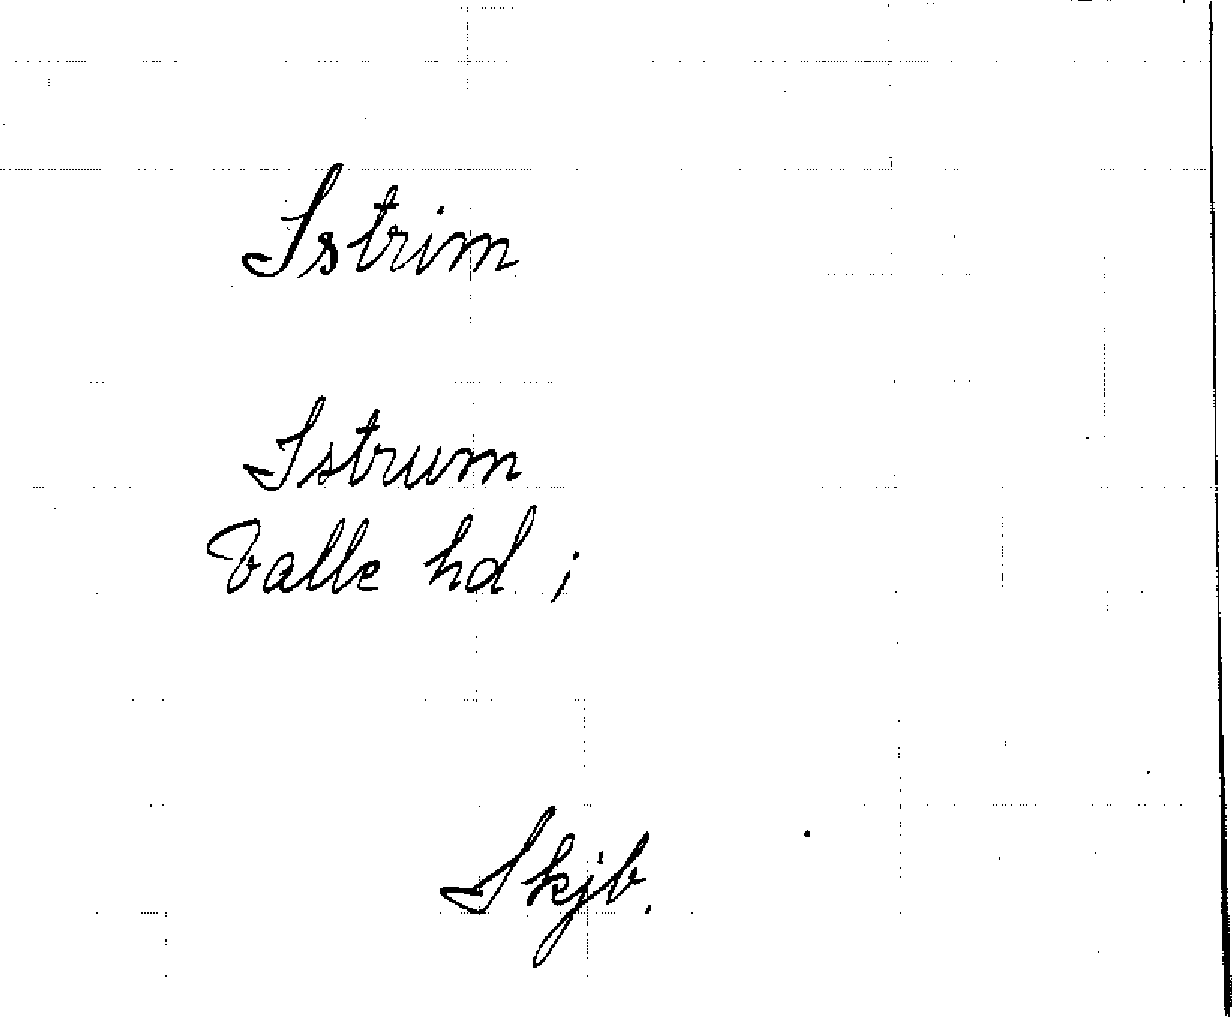 Istrim
Istrum
Valle hd ;
Skjb.